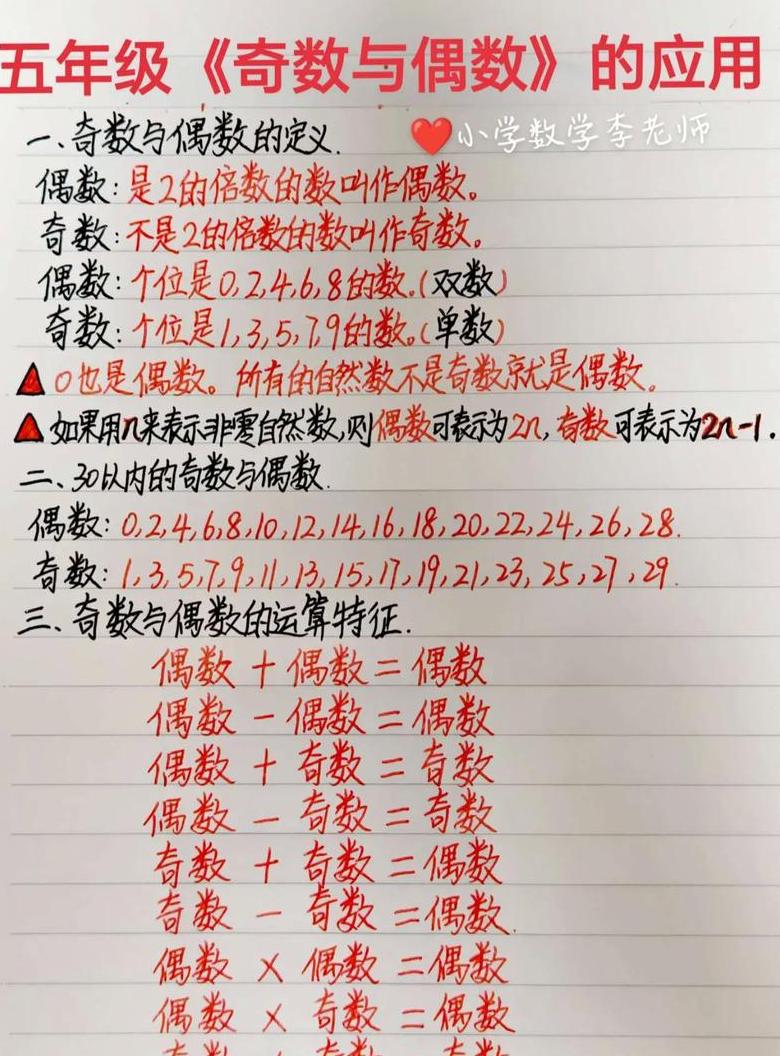 五年级《奇数与偶数》的应用
一、奇数与偶数的定义.
❤小学数学李老师
偶数:是2的倍数的数叫作偶数。
奇数:不是2的倍数的数叫作奇数。
偶数:个位是0,2,4,6,8的数。(双数)
奇数:个位是1,3,5,7,9的数。(单数)
▲0也是偶数。所有的自然数不是奇数就是偶数。
▲如果用n来表示非零自然数,则偶数可表示为2n,奇数可表示为2n-1.
二、30以内的奇数与偶数.
偶数:0,2,4,6,8,10,12,14,16,18,20,22,24,26,28.
奇数:1,3,5,7,9,11,13,15,17,19,21,23,25,27,29.
三、奇数与偶数的运算特征.
偶数+偶数=偶数
偶数-偶数=偶数
偶数+奇数=奇数
偶数-奇数=奇数
奇数+奇数=偶数
奇数-奇数=偶数.
偶数×偶数=偶数
偶数×奇数=偶数